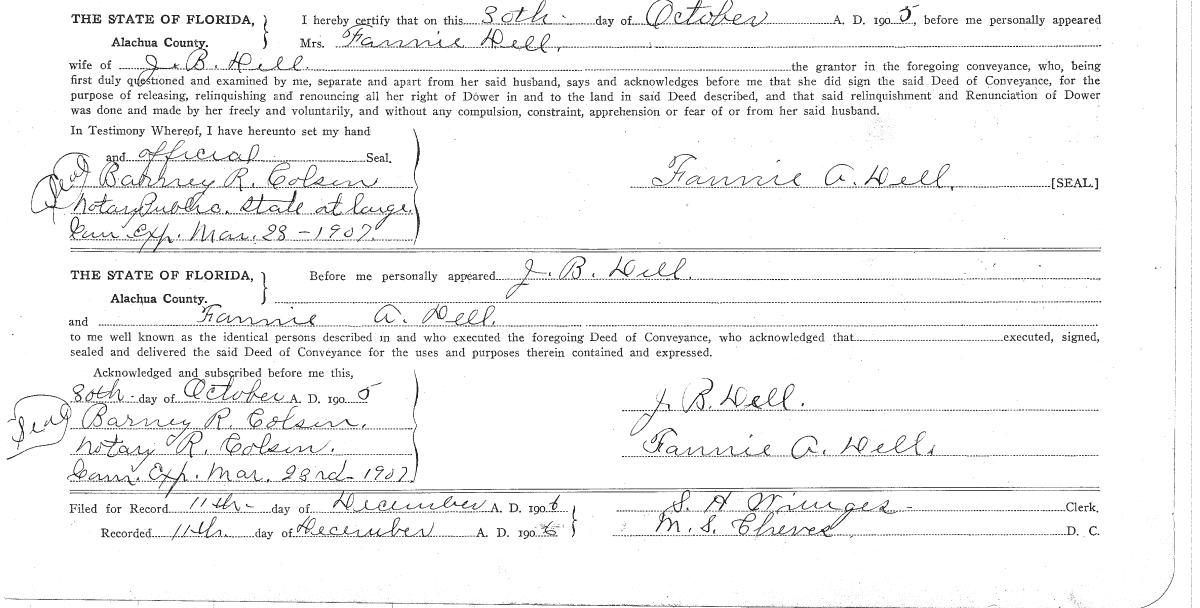 THE STATE OF FLORIDA, } I hereby certify that on this 30th. day of October A. D. 1905, before me personally appeared
Alachua County. Mrs. Fannie Dell.
wife of J. B. Dell. the grantor in the foregoing conveyance, who, being
first duly questioned and examined by me, separate and apart from her said husband, says and acknowledges before me that she did sign the said Deed of Conveyance, for the
purpose of releasing, relinquishing and renouncing all her right of Dower in and to the land in said Deed described, and that said relinquishment and Renunciation of Dower
was done and made by her freely and voluntarily, and without any compulsion, constraint, apprehension or fear of or from her said husband.
In Testimony Whereof, I have hereunto set my hand
and official Seal.
Seal Barney R. Colson Fannie A. Dell. [SEAL.]
Notary Public. State at large.
Com. Exp. Mar. 28 - 1907.
THE STATE OF FLORIDA, } Before me personally appeared J. B. Dell.
Alachua County.
and Fannie A. Dell.
to me well known as the identical persons described in and who executed the foregoing Deed of Conveyance, who acknowledged that executed, signed,
sealed and delivered the said Deed of Conveyance for the uses and purposes therein contained and expressed.
Acknowledged and subscribed before me this,
30th. day of October A. D. 1905 J. B. Dell.
Seal Barney R. Colson.
Notary R. Colson. Fannie A. Dell.
Com. Exp. Mar. 28rd - 1907.
Filed for Record 11th - day of December A. D. 1906 S. H Wienges - Clerk.
Recorded 11th. day of December A. D. 1906 M. S. Cheves D. C.